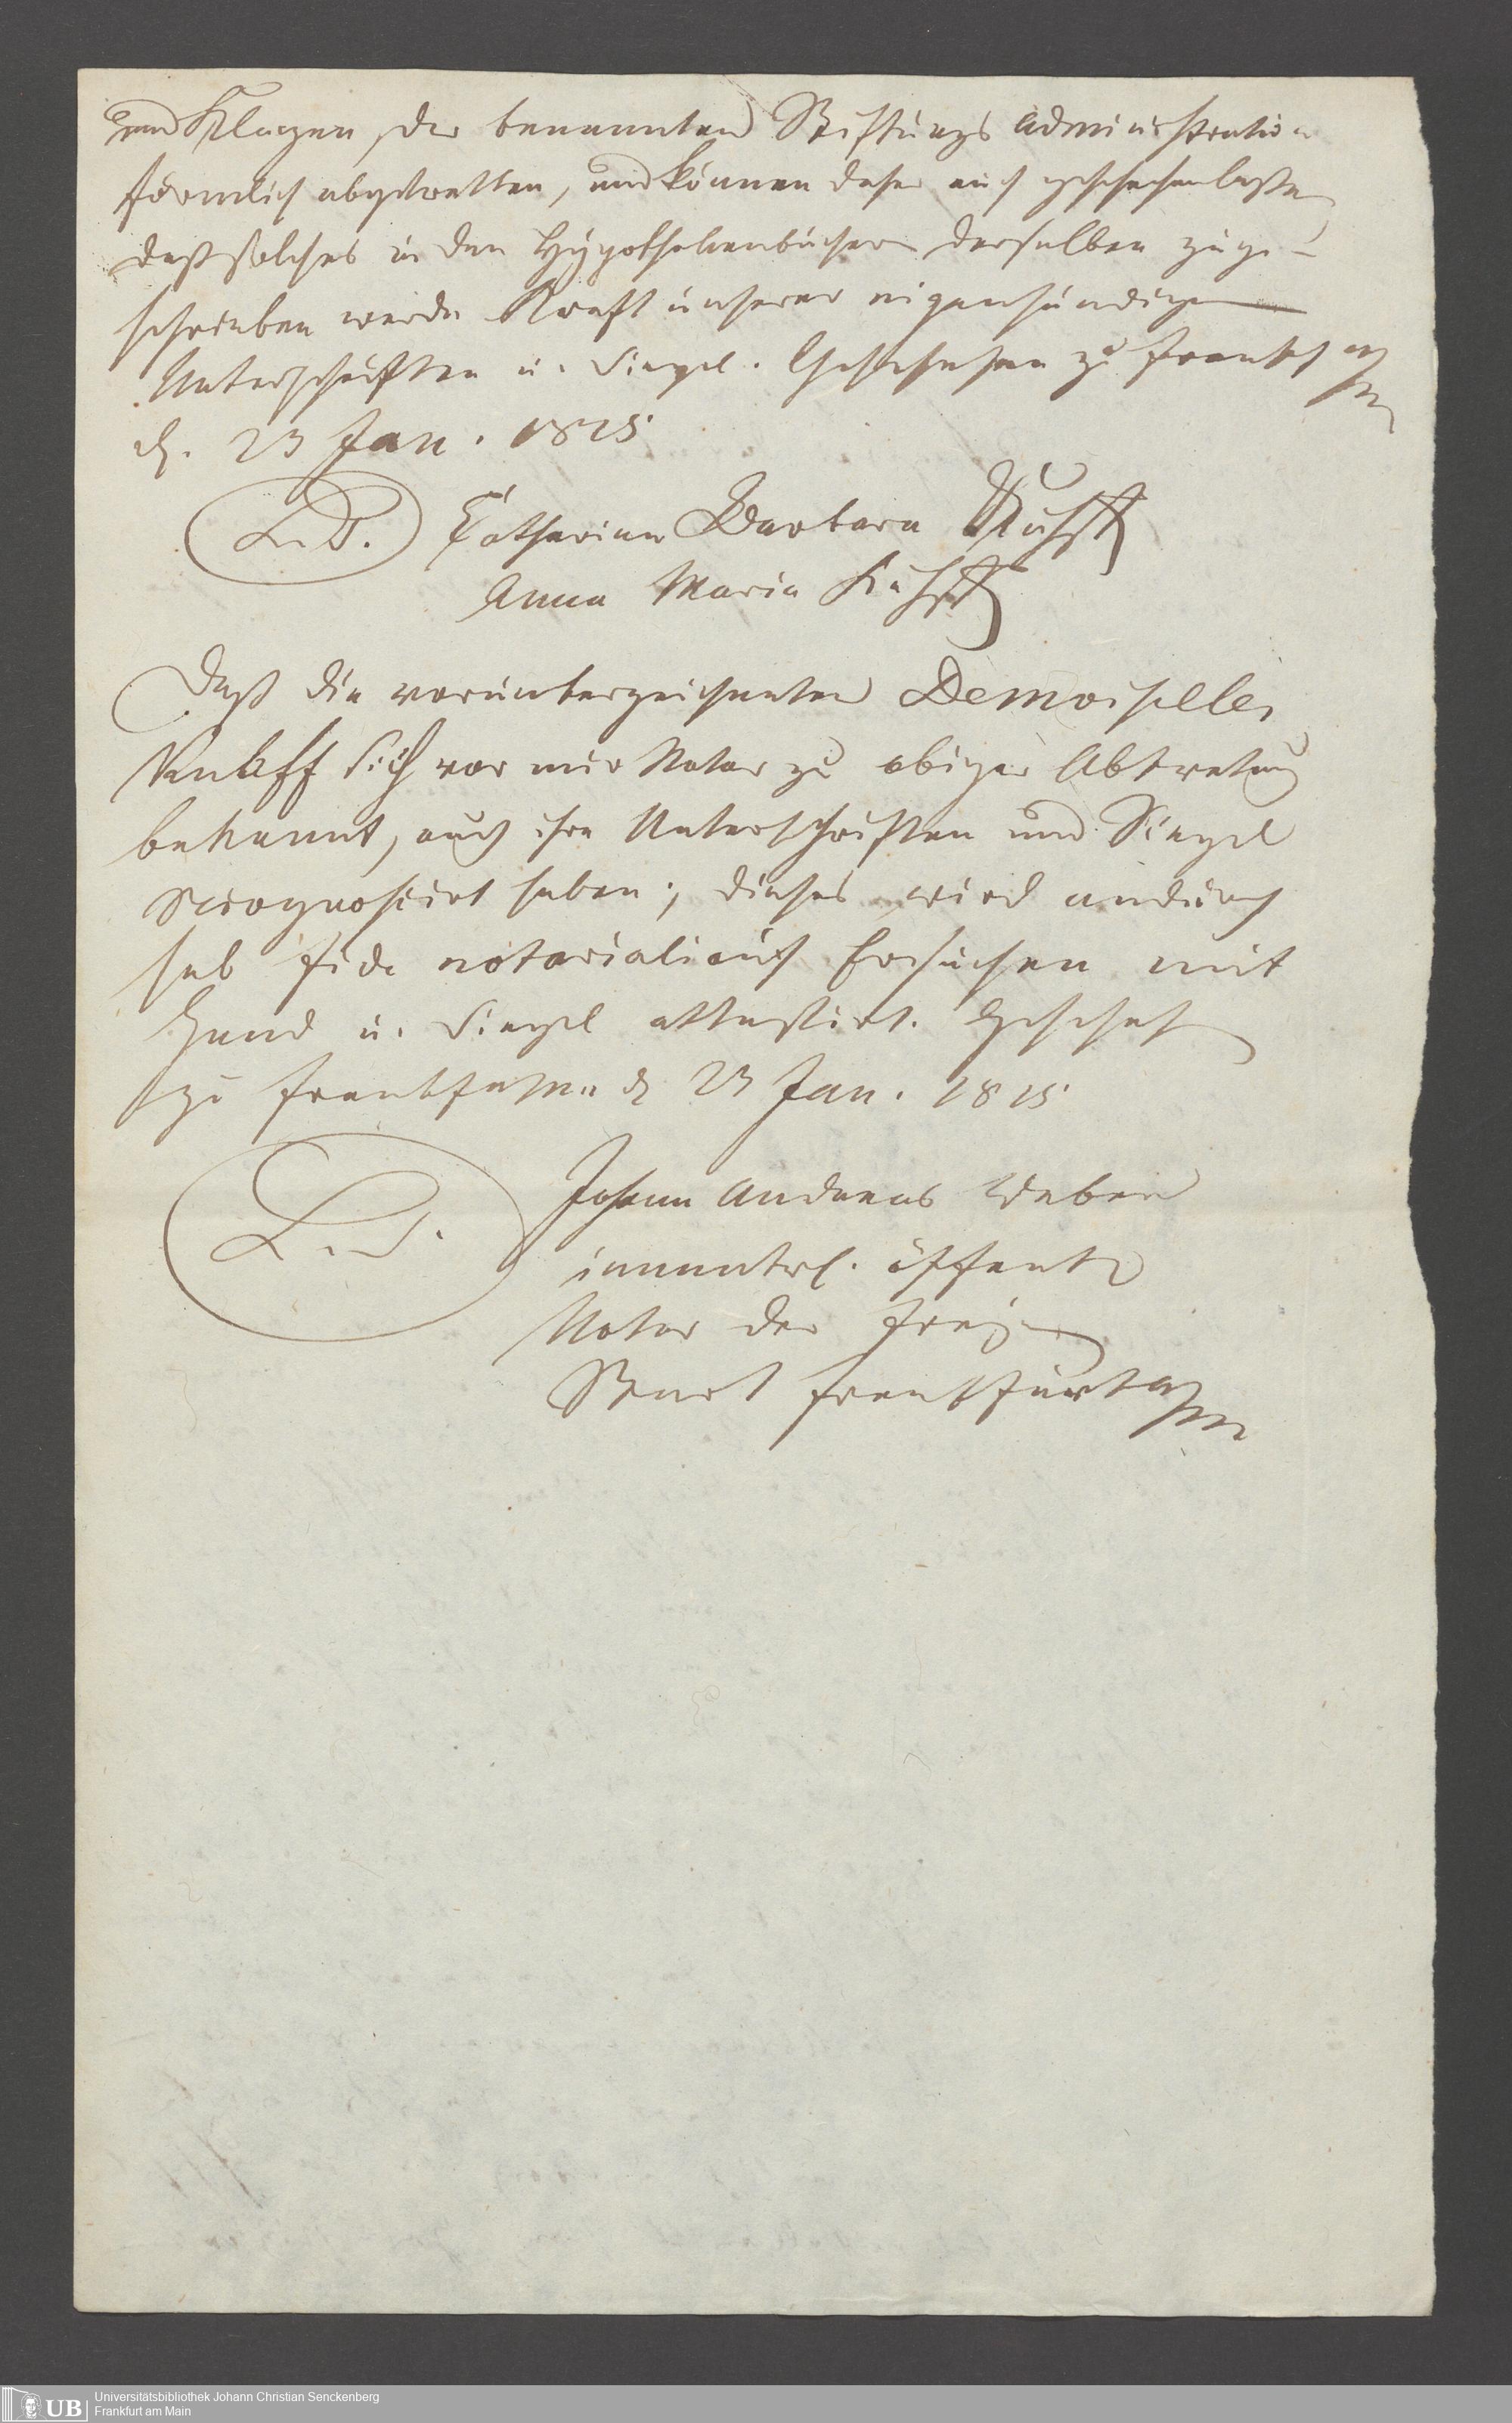 und Klagen, der benannten Stiftungs Administration
förmlich abgetretten, und können daher auch geschehen laßen
daß solches in den Hÿpothekenbücher derselben zuge-
schrieben werde Kraft unserer eigenhändigen
Unterschriften u. Siegel. Geschehen zu Frankf a/m
d. 23 Jan. 1815
L.S. Catharina Barbara
Anna Maria
Daß die vorunterzeichneten Demoiselles
sich vor mir Notar zu obiger Abtretung
bekannt, auch ihre Unterschriften und Siegel
recognoscirt haben; dieses wird andurch
sub fide notariali auf Ersuchen mit
Hand u. Siegel attestirt. Geschehen
zu Frankf a/m d 23 Jan. 1815
L.S.
Johann Andreas Weber
immatrl. öffentl
Notar der freÿen
Stadt Frankfurt a/m
UB
Universitätsbibliothek Johann Christian Senckenberg
Frankfurt am Main